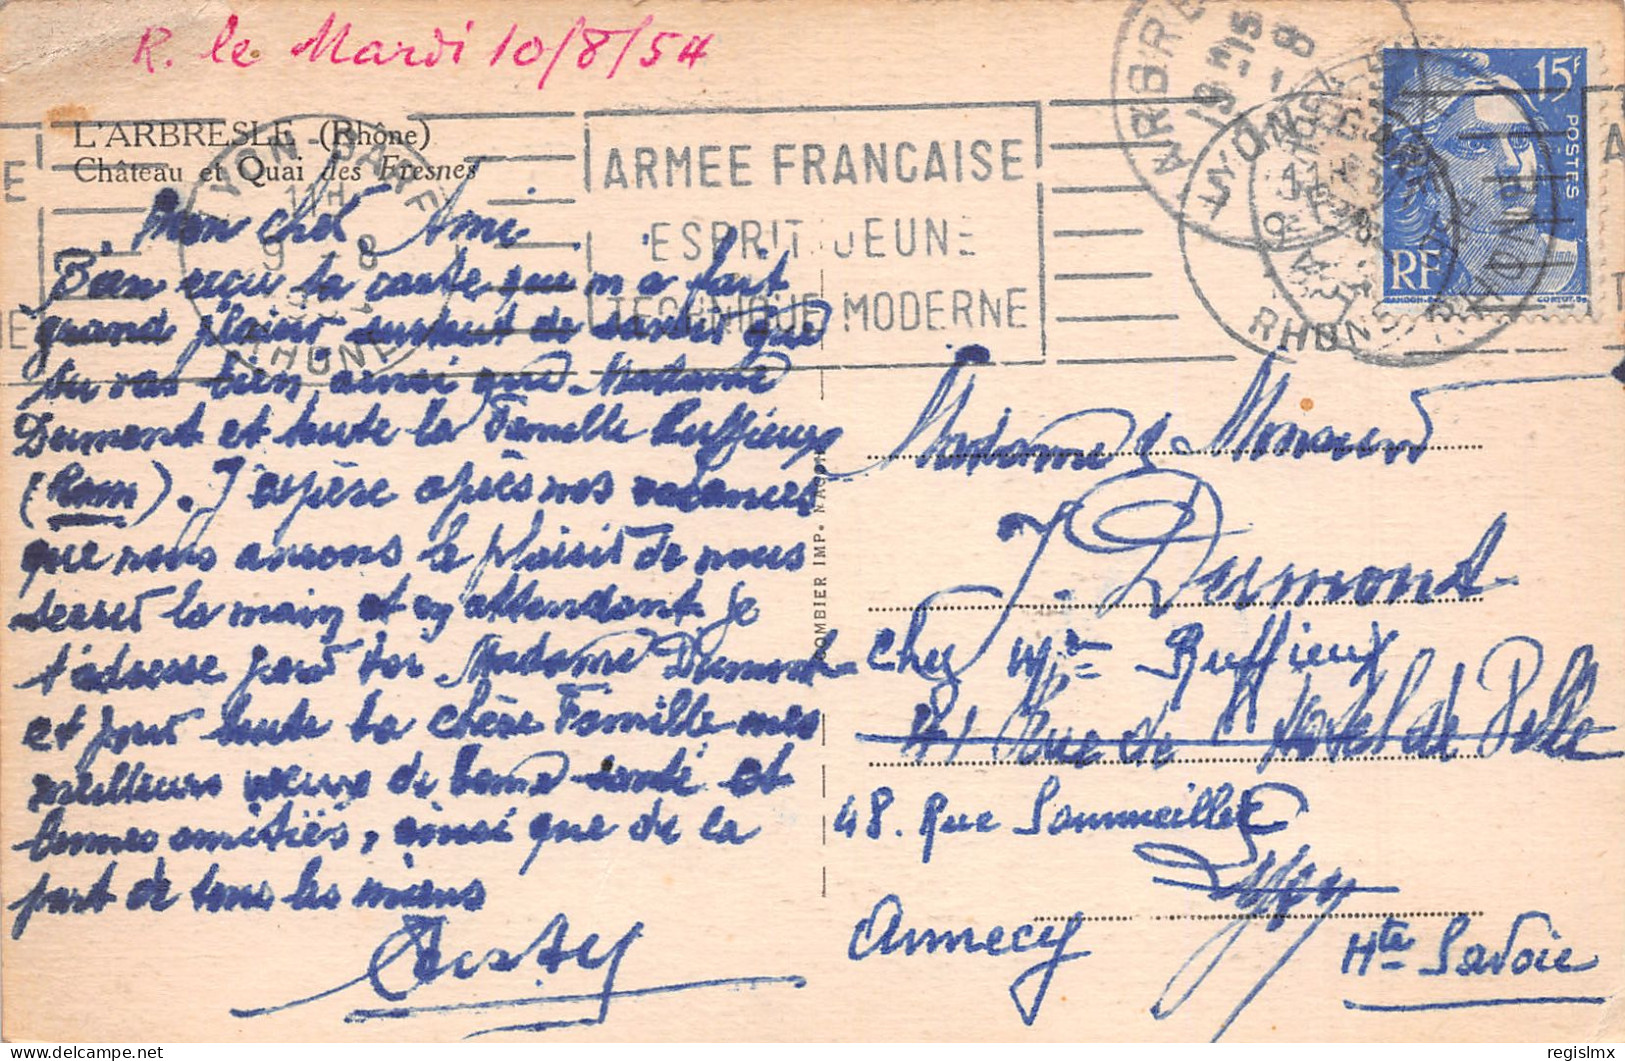 R. le Mardi 10/8/54
L'ARBRESLE (Rhône)
Château et Quai des Fresnes
ARMEE FRANCAISE
ESPRIT JEUNE
TECHNIQUE MODERNE
LYON-GARE
11H
9 - 8
RHONE
ARBRE
15F
POSTES
RF
Mon cher Ami
Bien reçu ta carte que m'a fait
grand plaisir, surtout de savoir que
tu vas bien, ainsi que Madame
Dumont et toute la Famille Ruffieux
J'espère après nos vacances
que nous aurons le plaisir de nous
serrer la main et en attendant je
t'adresse pour toi Madame Dumont
et pour toute ta chère Famille mes
meilleurs vœux de bonne santé et
bonnes amitiés, ainsi que de la
part de tous les miens
COMBIER IMP. MACON
Madame & Monsieur
J. Dumont
Chez Mr Ruffieux
41 Rue de l'Hotel de Ville
48. Rue Sommeiller
Lyon
Annecy
Hte Savoie
regislmx